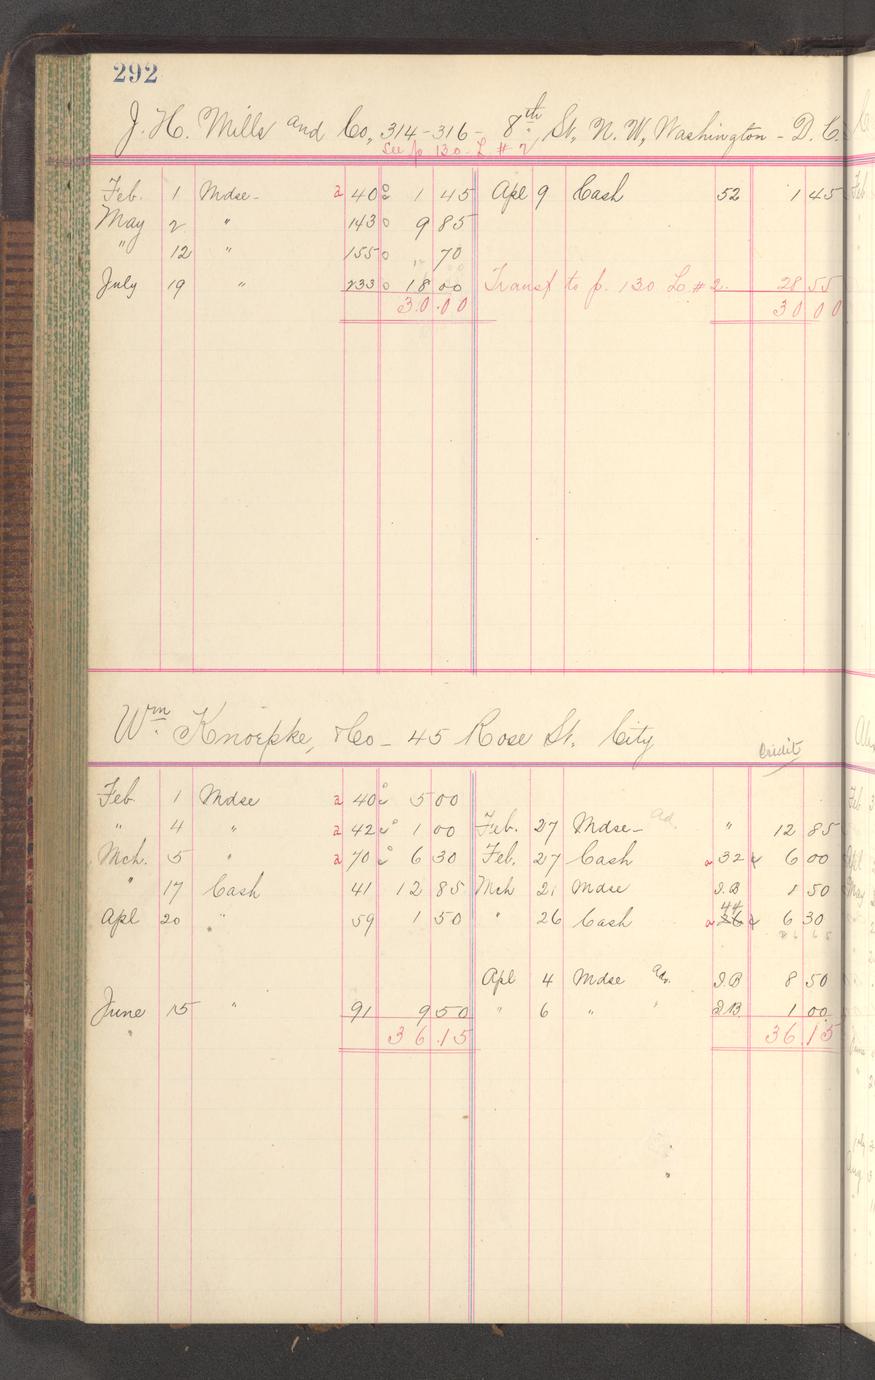 292
J. H. Mills and Co, 314-316- 8th St, N. W, Washington - D. C.
See p 130 - L # 2
Feb. 1 Mdse - a 40 1 45 Apl 9 Cash 52 1 45
May 2 " 143 9 85
" 12 " 155 70
July 19 " 233 18 00 Transf to p. 130 L # 2. 28 55
30.00 30 00
Wm Knoepke, & Co - 45 Rose St. City
Credit
Feb. 1 Mdse a 40 5 00
" 4 " a 42 1 00 Feb. 27 Mdse - ad. " 12 85
Mch. 5 " a 70 6 30 Feb. 27 Cash a 32 6 00
" 17 Cash 41 12 85 Mch 21 Mdse I.B 1 50
44
Apl 20 " 59 1 50 " 26 Cash a 36 6 30
Apl 4 Mdse adv. I.B 8 50
June 15 " 91 9 50 " 6 " " I.B. 1 00
36.15 36.15